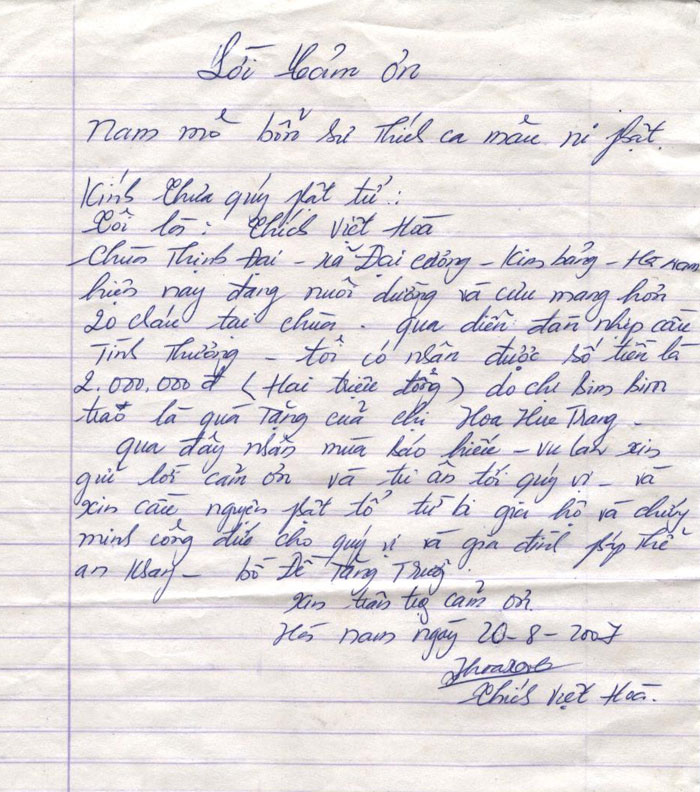 Lời Cảm ơn
Nam mô bổn sư Thích ca mâu ni phật.
Kính thưa quý phật tử :
Tôi là : Thích Việt Hoà
Chùa Thịnh Đại - xã Đại cương - Kim bảng - Hà nam
hiện nay đang nuôi dưỡng và cưu mang hơn
20 cháu tại chùa . qua diễn đàn nhịp cầu
Tình Thương - tôi có nhận được số tiền là
2.000.000 đ ( Hai triệu đồng ) do chị Bim Bim
trao là quà Tặng của chị Hoa Hue Trang -
qua đây nhân mùa báo hiếu - vu lan xin
gửi lời cảm ơn và tri ân tới quý vị - và
xin cầu nguyện phật tổ từ bi gia hộ và chứng
minh công đức cho quý vị và gia đình pháp thể
an khang - bồ Đề Tăng Trưởng
xin trân trọng cảm ơn.
Hà nam ngày 20-8-2007
Thích Việt Hoà.